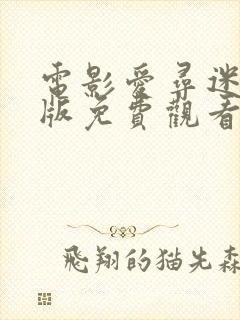 電影愛尋迷
版免費觀看
飛翔的猫先森